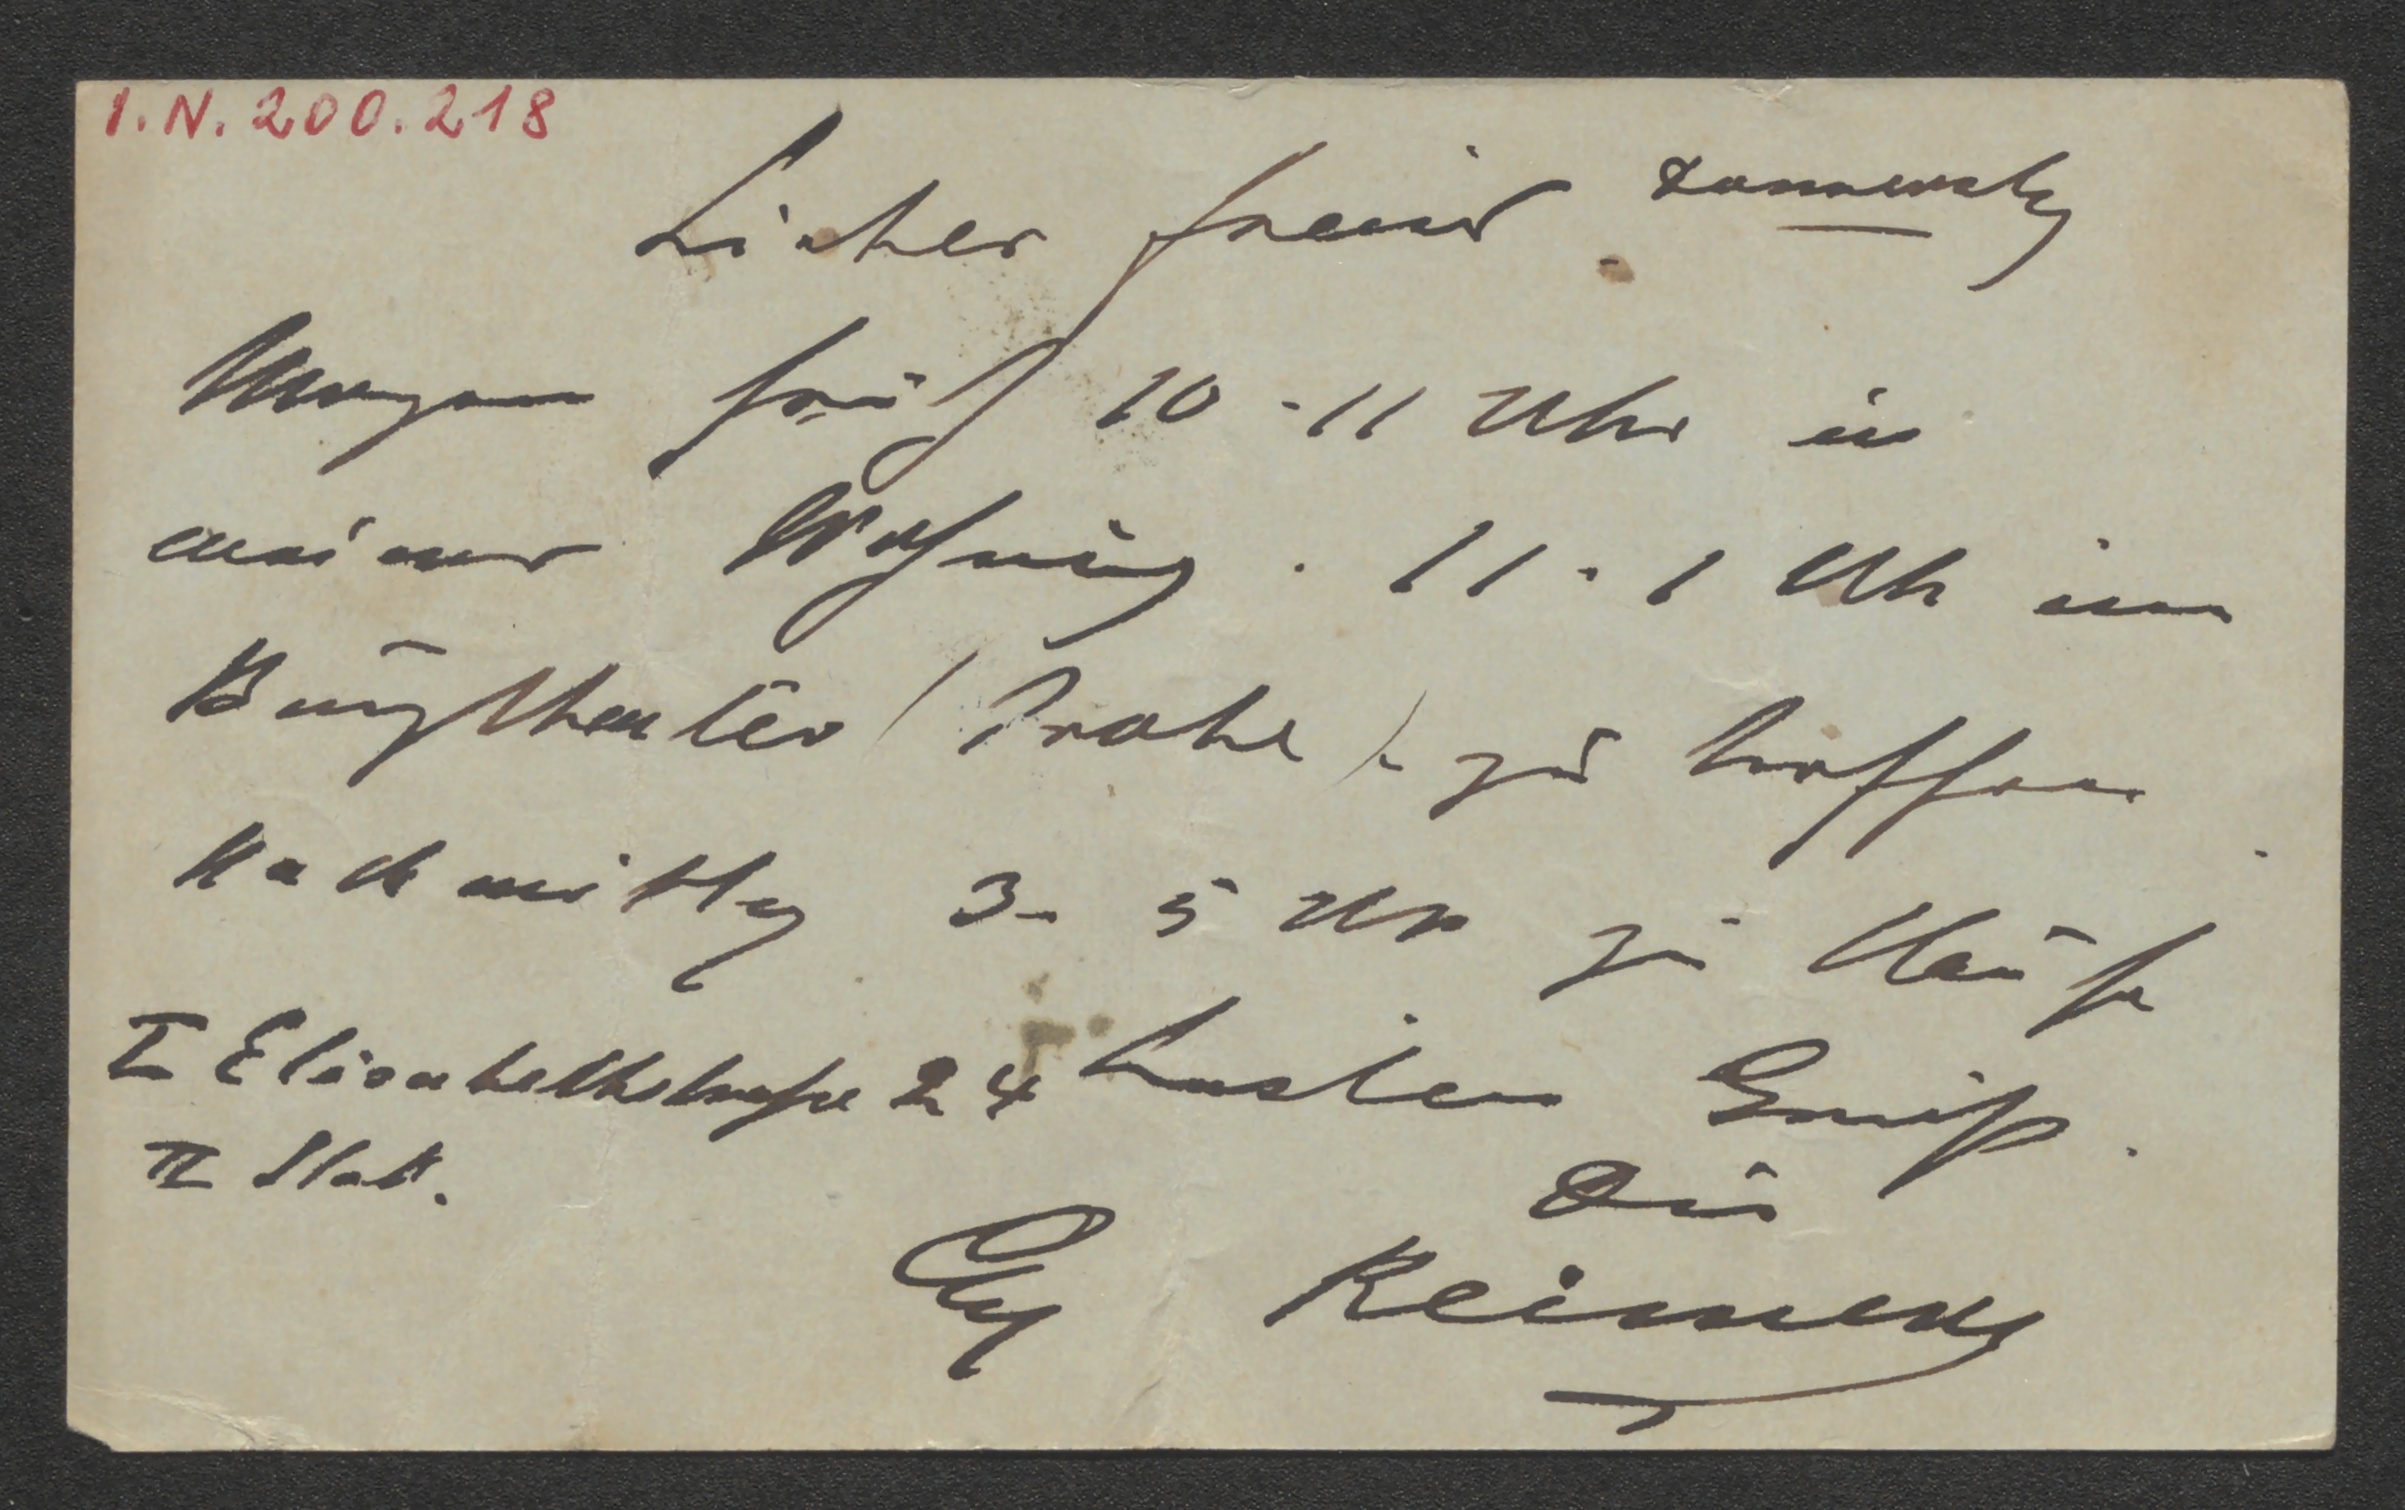 I.N. 200.218
Lieber Freund
Morgen früh 10-11 Uhr in
meiner Wohnung. 11-1 Uhr im
Burgtheater (Probe) zu treffen.
Nachmittag 3-5 Uhr zu Hause
I Elisabethstraße 24 besten Gruß.
II Stock.
Dein
Reimers